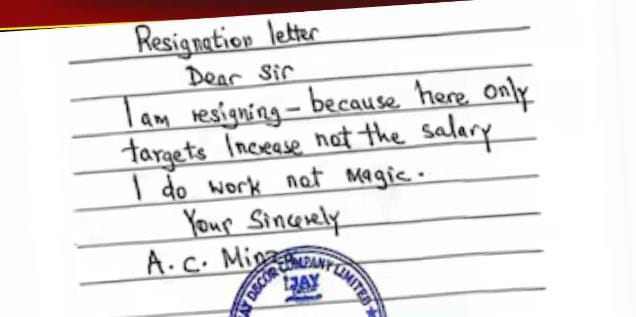 Resignation letter
Dear Sir
I am resigning - because here only
targets Increase not the salary
I do work not Magic.
Your Sincerely
A. C.
COMPANY LIMITED
JAY